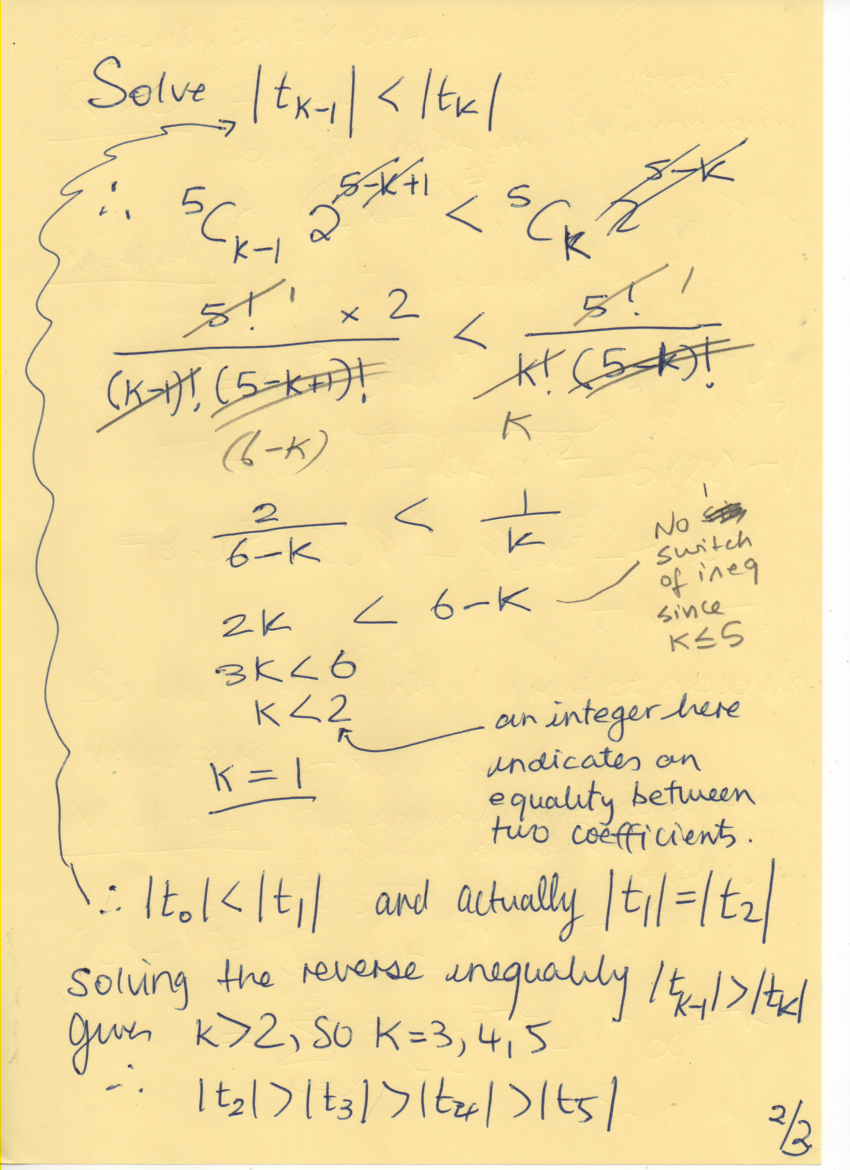 Solve |t_{K-1}| < |t_K|
∴ ⁵C_{K-1} 2^{5-K+1} < ⁵C_K 2^{5-K}
5! 1 × 2 / (K-1)! (5-K+1)! < 5! 1 / K! (5-K)!
(6-K) K
2/(6-K) < 1/K
2K < 6-K
No switch
of ineq
since
K≤5
3K<6
K<2
an integer here
indicates an
equality between
two coefficients.
K = 1
∴ |t₀| < |t₁| and actually |t₁|=|t₂|
Solving the reverse inequality |t_{K-1}|>|t_K|
gives K>2, so K=3,4,5
∴ |t₂|>|t₃|>|t₄|>|t₅|
2/3